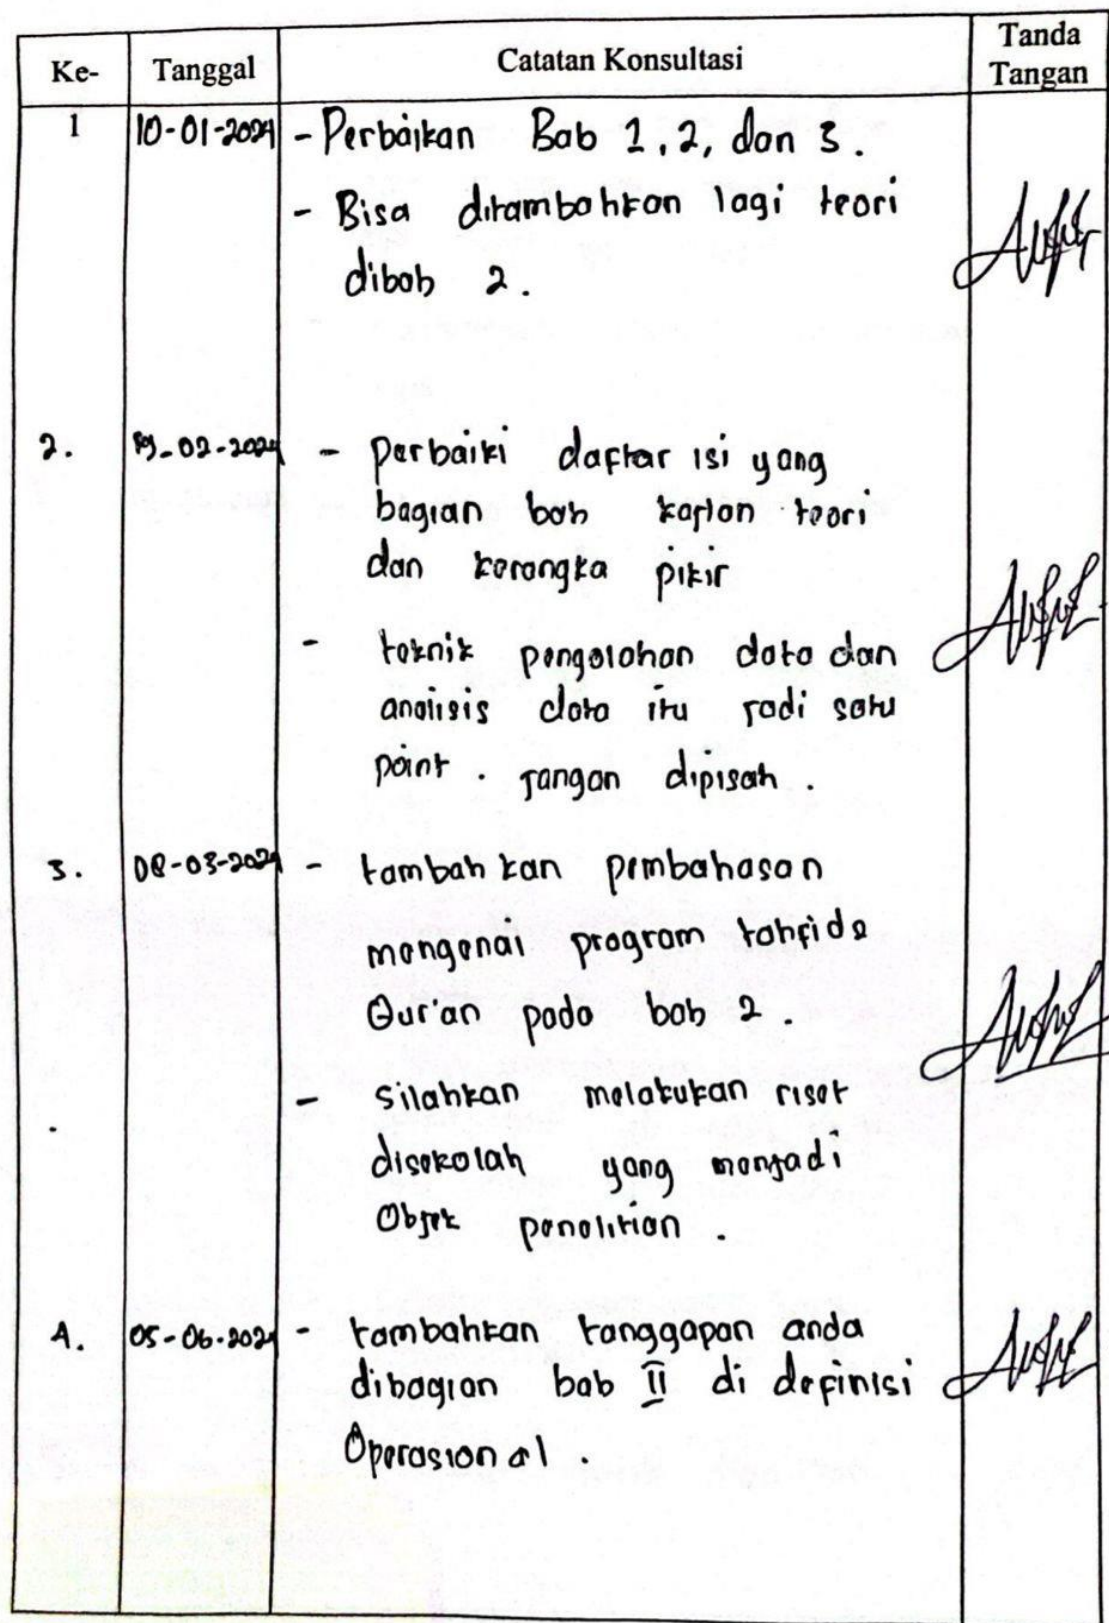 Ke- Tanggal Catatan Konsultasi Tanda Tangan
1 10-01-2024 - Perbaikan Bab 1, 2, dan 3.
- Bisa ditambahkan lagi teori
dibab 2.
2. -02-2024 - Perbaiki daftar isi yang
bagian bab kajian teori
dan kerangka pikir
- teknik pengolahan data dan
analisis data itu jadi satu
point. jangan dipisah.
3. 08-03-2024 - tambahkan pembahasan
mengenai program tahfidz
Qur'an pada bab 2.
- Silahkan melakukan riset
disekolah yang menjadi
Objek penelitian.
4. 05-06-2024 - tambahkan tanggapan anda
dibagian bab II di definisi
Operasional.